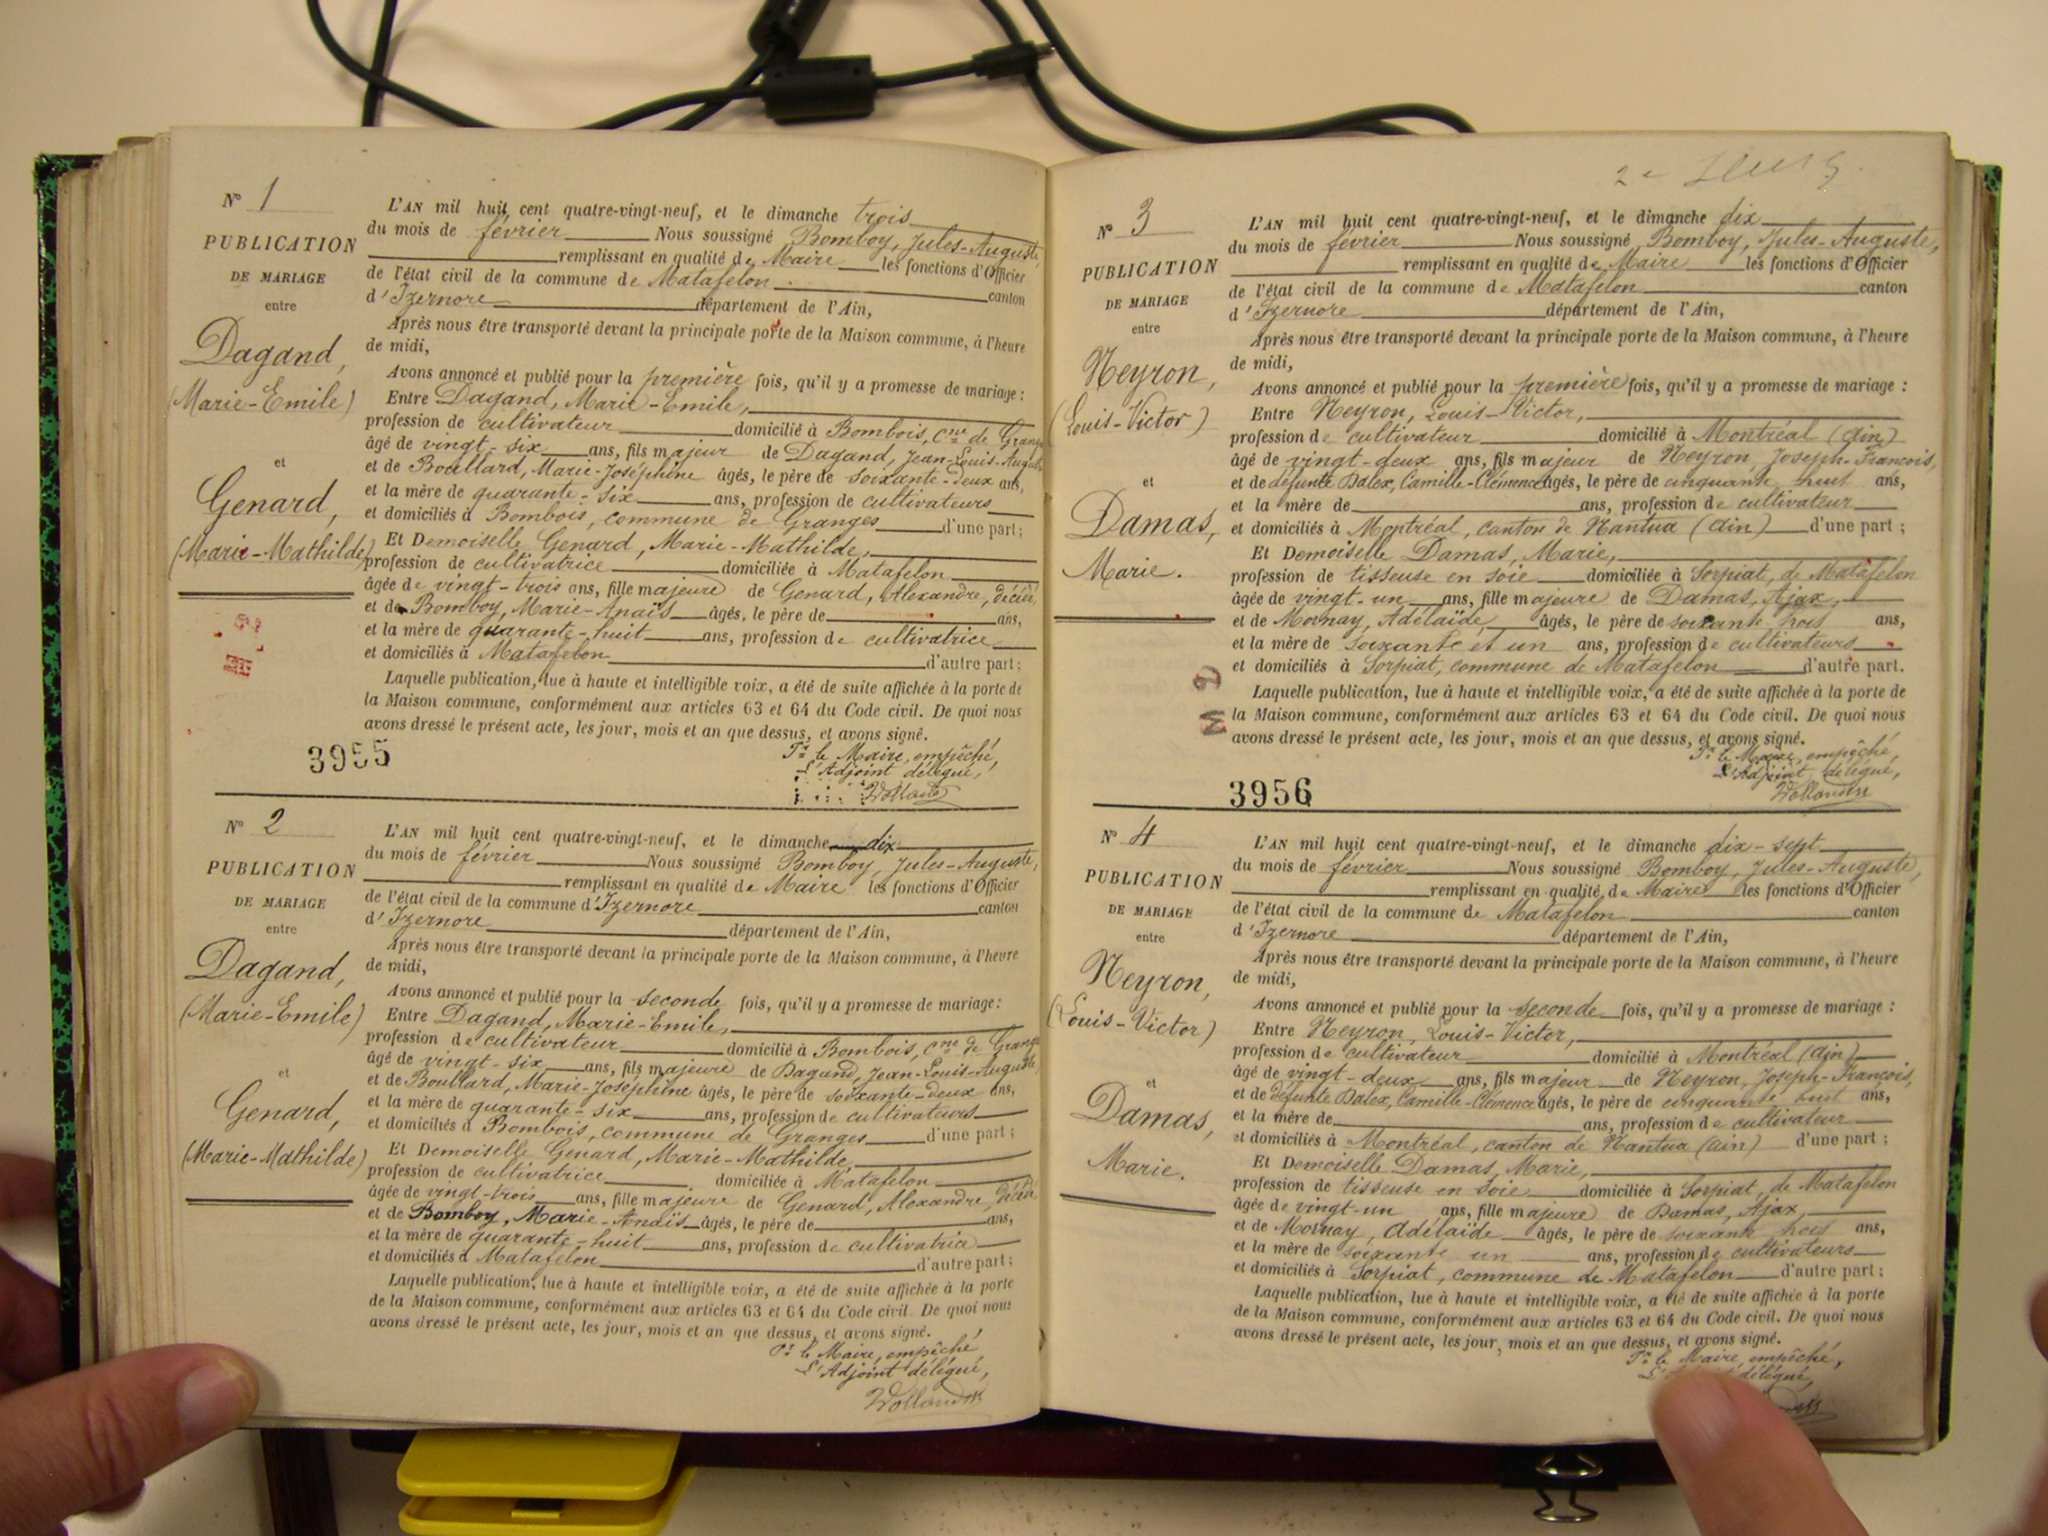 N° 1
PUBLICATION
DE MARIAGE
entre
Dagand,
(Marie-Emile)
et
Genard,
(Marie-Mathilde)
L'AN mil huit cent quatre-vingt-neuf, et le dimanche trois
du mois de février Nous soussigné Bomboy, Jules-Auguste,
remplissant en qualité de Maire les fonctions d'Officier
de l'état civil de la commune de Matafelon canton
d'Izernore département de l'Ain,
Après nous être transporté devant la principale porte de la Maison commune, à l'heure
de midi,
Avons annoncé et publié pour la première fois, qu'il y a promesse de mariage :
Entre Dagand, Marie-Emile,
profession de cultivateur domicilié à Bombois, cne de Granges
âgé de vingt-six ans, fils majeur de Dagand, Jean-Louis-Auguste
et de Boullard, Marie-Joséphine âgés, le père de soixante-deux ans,
et la mère de quarante-six ans, profession de cultivateurs
et domiciliés à Bombois, commune de Granges d'une part ;
Et Demoiselle Genard, Marie-Mathilde,
profession de cultivatrice domiciliée à Matafelon
âgée de vingt-trois ans, fille majeure de Genard, Alexandre, décédé,
et de Bomboy, Marie-Anaïs âgés, le père de ans,
et la mère de quarante-huit ans, profession de cultivatrice
et domiciliés à Matafelon d'autre part ;
Laquelle publication, lue à haute et intelligible voix, a été de suite affichée à la porte de
la Maison commune, conformément aux articles 63 et 64 du Code civil. De quoi nous
avons dressé le présent acte, les jour, mois et an que dessus, et avons signé.
Pr le Maire, empêché,
L'Adjoint délégué,
3955
N° 2
PUBLICATION
DE MARIAGE
entre
Dagand,
(Marie-Emile)
et
Genard,
(Marie-Mathilde)
L'AN mil huit cent quatre-vingt-neuf, et le dimanche dix
du mois de février Nous soussigné Bomboy, Jules-Auguste,
remplissant en qualité de Maire les fonctions d'Officier
de l'état civil de la commune d'Izernore canton
d'Izernore département de l'Ain,
Après nous être transporté devant la principale porte de la Maison commune, à l'heure
de midi,
Avons annoncé et publié pour la seconde fois, qu'il y a promesse de mariage :
Entre Dagand, Marie-Emile,
profession de cultivateur domicilié à Bombois, cne de Granges
âgé de vingt-six ans, fils majeure de Dagand, Jean-Louis-Auguste
et de Boullard, Marie-Joséphine âgés, le père de soixante-deux ans,
et la mère de quarante-six ans, profession de cultivateurs
et domiciliés à Bombois, commune de Granges d'une part ;
Et Demoiselle Genard, Marie-Mathilde,
profession de cultivatrice domiciliée à Matafelon
âgée de vingt-trois ans, fille majeure de Genard, Alexandre, décédé
et de Bomboy, Marie-Anaïs âgés, le père de ans,
et la mère de quarante-huit ans, profession de cultivatrice
et domiciliés à Matafelon d'autre part ;
Laquelle publication, lue à haute et intelligible voix, a été de suite affichée à la porte
de la Maison commune, conformément aux articles 63 et 64 du Code civil. De quoi nous
avons dressé le présent acte, les jour, mois et an que dessus, et avons signé.
Pr le Maire, empêché,
L'Adjoint délégué,
2e
N° 3
PUBLICATION
DE MARIAGE
entre
Neyron,
(Louis-Victor)
et
Damas,
Marie.
L'AN mil huit cent quatre-vingt-neuf, et le dimanche dix
du mois de février Nous soussigné Bomboy, Jules-Auguste,
remplissant en qualité de Maire les fonctions d'Officier
de l'état civil de la commune de Matafelon canton
d'Izernore département de l'Ain,
Après nous être transporté devant la principale porte de la Maison commune, à l'heure
de midi,
Avons annoncé et publié pour la première fois, qu'il y a promesse de mariage :
Entre Neyron, Louis-Victor,
profession de cultivateur domicilié à Montréal (Ain)
âgé de vingt-deux ans, fils majeur de Neyron, Joseph-François,
et de défunte Dalex, Camille-Clémence âgés, le père de cinquante huit ans,
et la mère de ans, profession de cultivateur
et domiciliés à Montréal, canton de Nantua (Ain) d'une part ;
Et Demoiselle Damas, Marie,
profession de tisseuse en soie domiciliée à Sorpiat, de Matafelon
âgée de vingt-un ans, fille majeure de Damas, Ajax,
et de Mornay, Adélaïde, âgés, le père de soixante trois ans,
et la mère de soixante et un ans, profession de cultivateurs
et domiciliés à Sorpiat, commune de Matafelon d'autre part.
Laquelle publication, lue à haute et intelligible voix, a été de suite affichée à la porte de
la Maison commune, conformément aux articles 63 et 64 du Code civil. De quoi nous
avons dressé le présent acte, les jour, mois et an que dessus, et avons signé.
Pr le Maire, empêché,
L'Adjoint délégué,
M D
3956
N° 4
PUBLICATION
DE MARIAGE
entre
Neyron,
(Louis-Victor)
et
Damas,
Marie.
L'AN mil huit cent quatre-vingt-neuf, et le dimanche dix-sept
du mois de février Nous soussigné Bomboy, Jules-Auguste,
remplissant en qualité de Maire les fonctions d'Officier
de l'état civil de la commune de Matafelon canton
d'Izernore département de l'Ain,
Après nous être transporté devant la principale porte de la Maison commune, à l'heure
de midi,
Avons annoncé et publié pour la seconde fois, qu'il y a promesse de mariage :
Entre Neyron, Louis-Victor,
profession de cultivateur domicilié à Montréal (Ain)
âgé de vingt-deux ans, fils majeur de Neyron, Joseph-François,
et de défunte Dalex, Camille-Clémence âgés, le père de cinquante huit ans,
et la mère de ans, profession de cultivateur
et domiciliés à Montréal, canton de Nantua (Ain) d'une part ;
Et Demoiselle Damas, Marie,
profession de tisseuse en soie domiciliée à Sorpiat, de Matafelon
âgée de vingt-un ans, fille majeure de Damas, Ajax,
et de Mornay, Adélaïde âgés, le père de soixante trois ans,
et la mère de soixante un ans, profession de cultivateurs
et domiciliés à Sorpiat, commune de Matafelon d'autre part ;
Laquelle publication, lue à haute et intelligible voix, a été de suite affichée à la porte
de la Maison commune, conformément aux articles 63 et 64 du Code civil. De quoi nous
avons dressé le présent acte, les jour, mois et an que dessus, et avons signé.
Pr le Maire, empêché,
délégué,